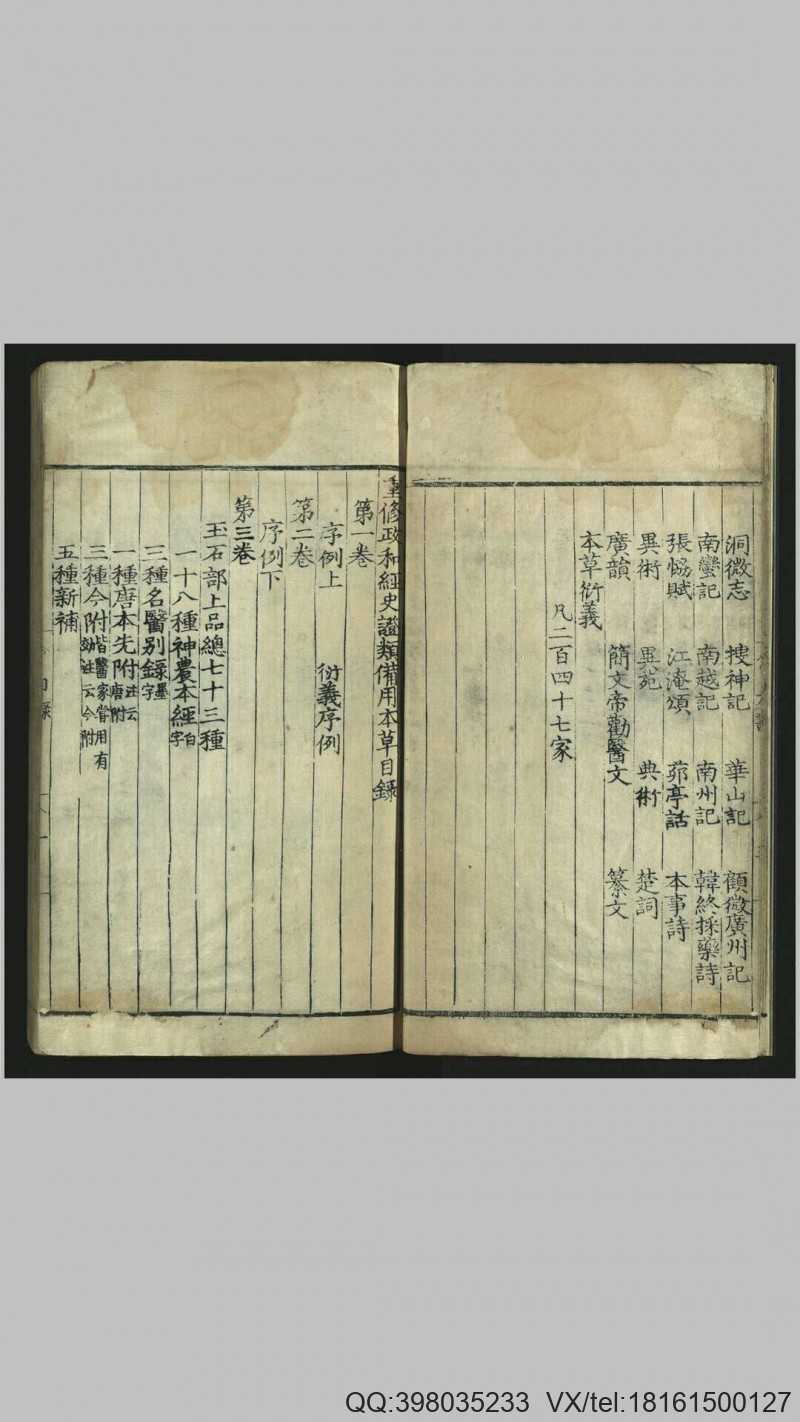 洞微志 搜神記 華山記 顧微廣州記
南蠻記 南越記 南州記 韓終採藥詩
張恊賦 江淹頌 茆亭話 本事詩
異術 異苑 典術 楚詞
廣韻 簡文帝勸醫文 纂文
本草衍義
凡二百四十七家
重修政和經史證類備用本草目錄
第一卷
序例上 衍義序例
第二卷
序例下
第三卷
玉石部上品總七十三種
一十八種神農本經白字
三種名醫别錄墨字
一種唐本先附註云唐附
三種今附皆醫家嘗用有効註云今附
五種新補
QQ:398035233 VX/tel:18161500127